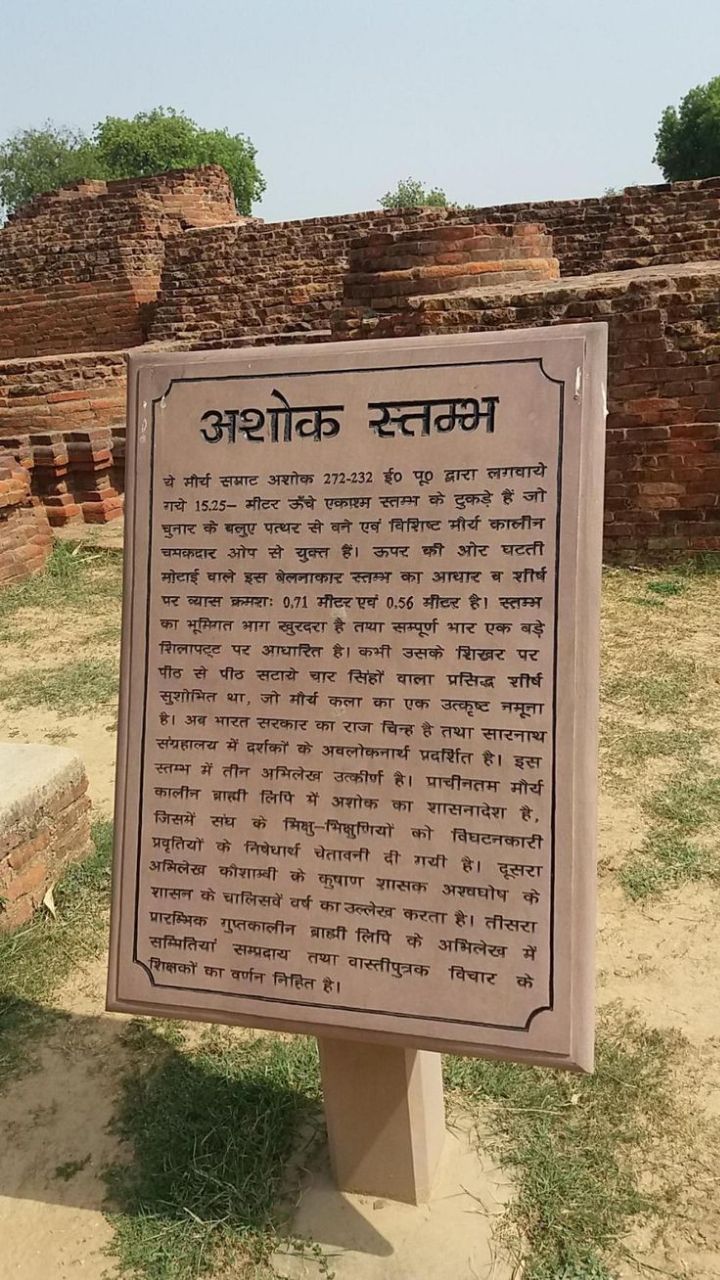 अशोक स्तम्भ
ये मौर्य सम्राट अशोक 272-232 ई० पू० द्वारा लगवाये
गये 15.25– मीटर ऊँचे एकाश्म स्तम्भ के टुकड़े हैं जो
चुनार के बलुए पत्थर से बने एवं विशिष्ट मौर्य कालीन
चमकदार ओप से युक्त हैं। ऊपर की ओर घटती
मोटाई वाले इस बेलनाकार स्तम्भ का आधार व शीर्ष
पर व्यास क्रमशः 0.71 मीटर एवं 0.56 मीटर है। स्तम्भ
का भूमिगत भाग खुरदरा है तथा सम्पूर्ण भार एक बड़े
शिलापट्ट पर आधारित है। कभी उसके शिखर पर
पीठ से पीठ सटाये चार सिंहों वाला प्रसिद्ध शीर्ष
सुशोभित था, जो मौर्य कला का एक उत्कृष्ट नमूना
है। अब भारत सरकार का राज चिन्ह है तथा सारनाथ
संग्रहालय में दर्शकों के अवलोकनार्थ प्रदर्शित है। इस
स्तम्भ में तीन अभिलेख उत्कीर्ण है। प्राचीनतम मौर्य
कालीन ब्राह्मी लिपि में अशोक का शासनादेश है,
जिसमें संघ के भिक्षु–भिक्षुणियों को विघटनकारी
प्रवृतियों के निषेधार्थ चेतावनी दी गयी है। दूसरा
अभिलेख कौशाम्बी के कुषाण शासक अश्वघोष के
शासन के चालिसवें वर्ष का उल्लेख करता है। तीसरा
प्रारम्भिक गुप्तकालीन ब्राह्मी लिपि के अभिलेख में
सम्मितियां सम्प्रदाय तथा वास्तीपुत्रक विचार के
शिक्षकों का वर्णन निहित है।